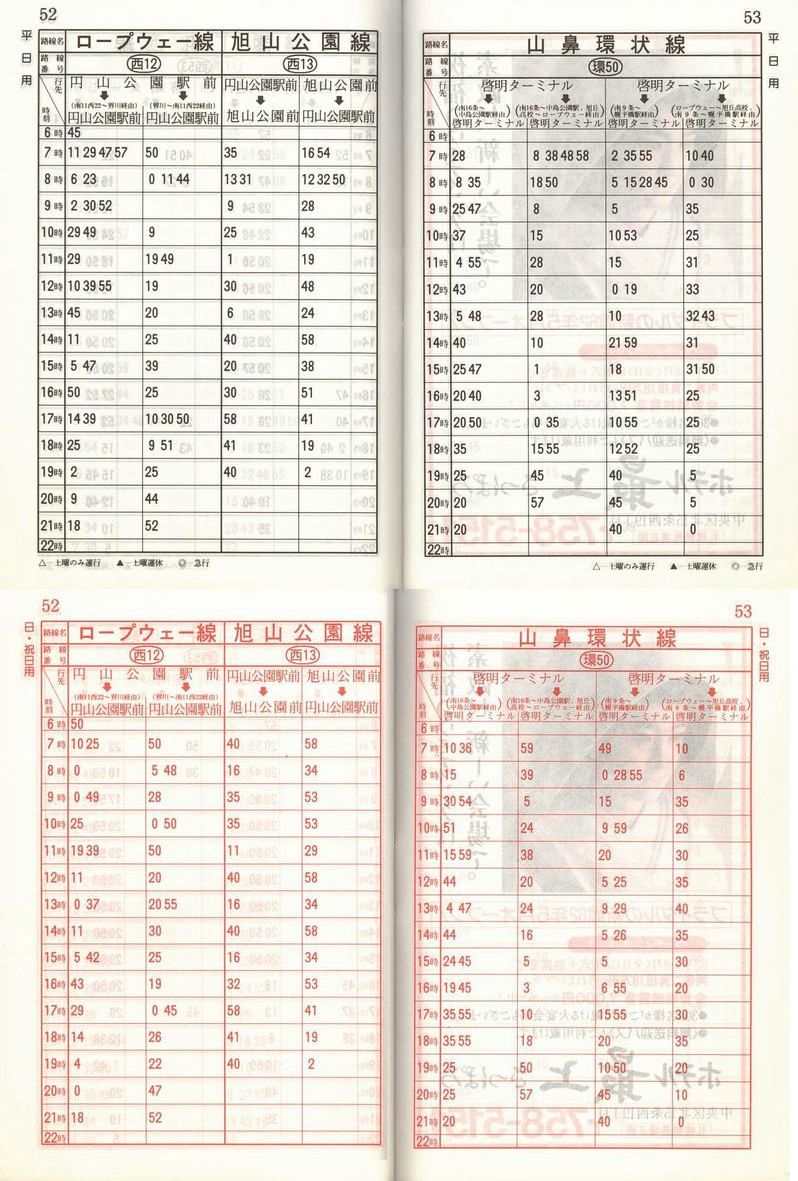 52
平日用
路線名 ロープウェー線 旭山公園線
路線番号 西12 西13
行先 時刻
円山公園駅前 (南11西22〜界川経由) 円山公園駅前
円山公園駅前 (界川〜南11西22経由) 円山公園駅前
円山公園駅前 旭山公園前
旭山公園前 円山公園駅前
6時 45
7時 11 29 47 57 50 35 16 54
8時 6 23 0 11 44 13 31 12 32 50
9時 2 30 52 9 28
10時 29 49 9 25 43
11時 29 19 49 1 19
12時 10 39 55 19 30 48
13時 45 20 6 24
14時 11 25 40 58
15時 5 47 39 20 38
16時 50 25 30 51
17時 14 39 10 30 50 58 41
18時 25 9 51 41 19
19時 2 25 40 2
20時 9 44
21時 18 52
22時
△ 土曜のみ運行 ▲ 土曜運休 ◎ 急行
53
平日用
路線名 山鼻環状線
路線番号 環50
行先 時刻
啓明ターミナル 啓明ターミナル
(南16条〜中島公園駅経由) 啓明ターミナル
(南16条〜中島公園駅、旭丘高校〜ロープウェー経由) 啓明ターミナル
(南9条〜幌平橋駅経由) 啓明ターミナル
(ロープウェー〜旭丘高校、南9条〜幌平橋駅経由) 啓明ターミナル
6時
7時 28 8 38 48 58 2 35 55 10 40
8時 8 35 18 50 5 15 28 45 0 30
9時 25 47 8 5 35
10時 37 15 10 53 25
11時 4 55 28 15 31
12時 43 20 0 19 33
13時 5 48 28 10 32 43
14時 40 10 21 59 31
15時 25 47 1 18 31 50
16時 20 40 3 13 51 25
17時 20 50 0 35 10 55 25
18時 35 15 55 12 52 25
19時 25 45 40 5
20時 20 57 45 5
21時 20 40 0
22時
△ 土曜のみ運行 ▲ 土曜運休 ◎ 急行
52
日・祝日用
路線名 ロープウェー線 旭山公園線
路線番号 西12 西13
行先 時刻
円山公園駅前 (南11西22〜界川経由) 円山公園駅前
円山公園駅前 (界川〜南11西22経由) 円山公園駅前
円山公園駅前 旭山公園前
旭山公園前 円山公園駅前
6時 50
7時 10 25 50 40 58
8時 0 5 48 16 34
9時 0 49 28 35 53
10時 25 0 50 35 53
11時 19 39 50 11 29
12時 11 20 40 58
13時 0 37 20 55 16 34
14時 11 30 40 58
15時 5 42 25 16 34
16時 43 19 32 53
17時 29 0 45 58 41
18時 14 26 41 19
19時 4 22 40 2
20時 0 47
21時 18 52
22時
53
日・祝日用
路線名 山鼻環状線
路線番号 環50
行先 時刻
啓明ターミナル 啓明ターミナル
(南16条〜中島公園駅経由) 啓明ターミナル
(南16条〜中島公園駅、旭丘高校〜ロープウェー経由) 啓明ターミナル
(南9条〜幌平橋駅経由) 啓明ターミナル
(ロープウェー〜旭丘高校、南9条〜幌平橋駅経由) 啓明ターミナル
6時
7時 10 36 59 49 10
8時 15 39 0 28 55 6
9時 30 54 5 15 35
10時 51 24 9 59 26
11時 15 59 38 20 30
12時 44 20 5 25 35
13時 4 47 24 9 29 40
14時 44 16 5 26 35
15時 24 45 5 5 30
16時 19 45 3 6 55 20
17時 35 55 10 15 55 30
18時 35 55 18 20 35
19時 25 50 10 50 20
20時 25 57 45 10
21時 20 40 0
22時